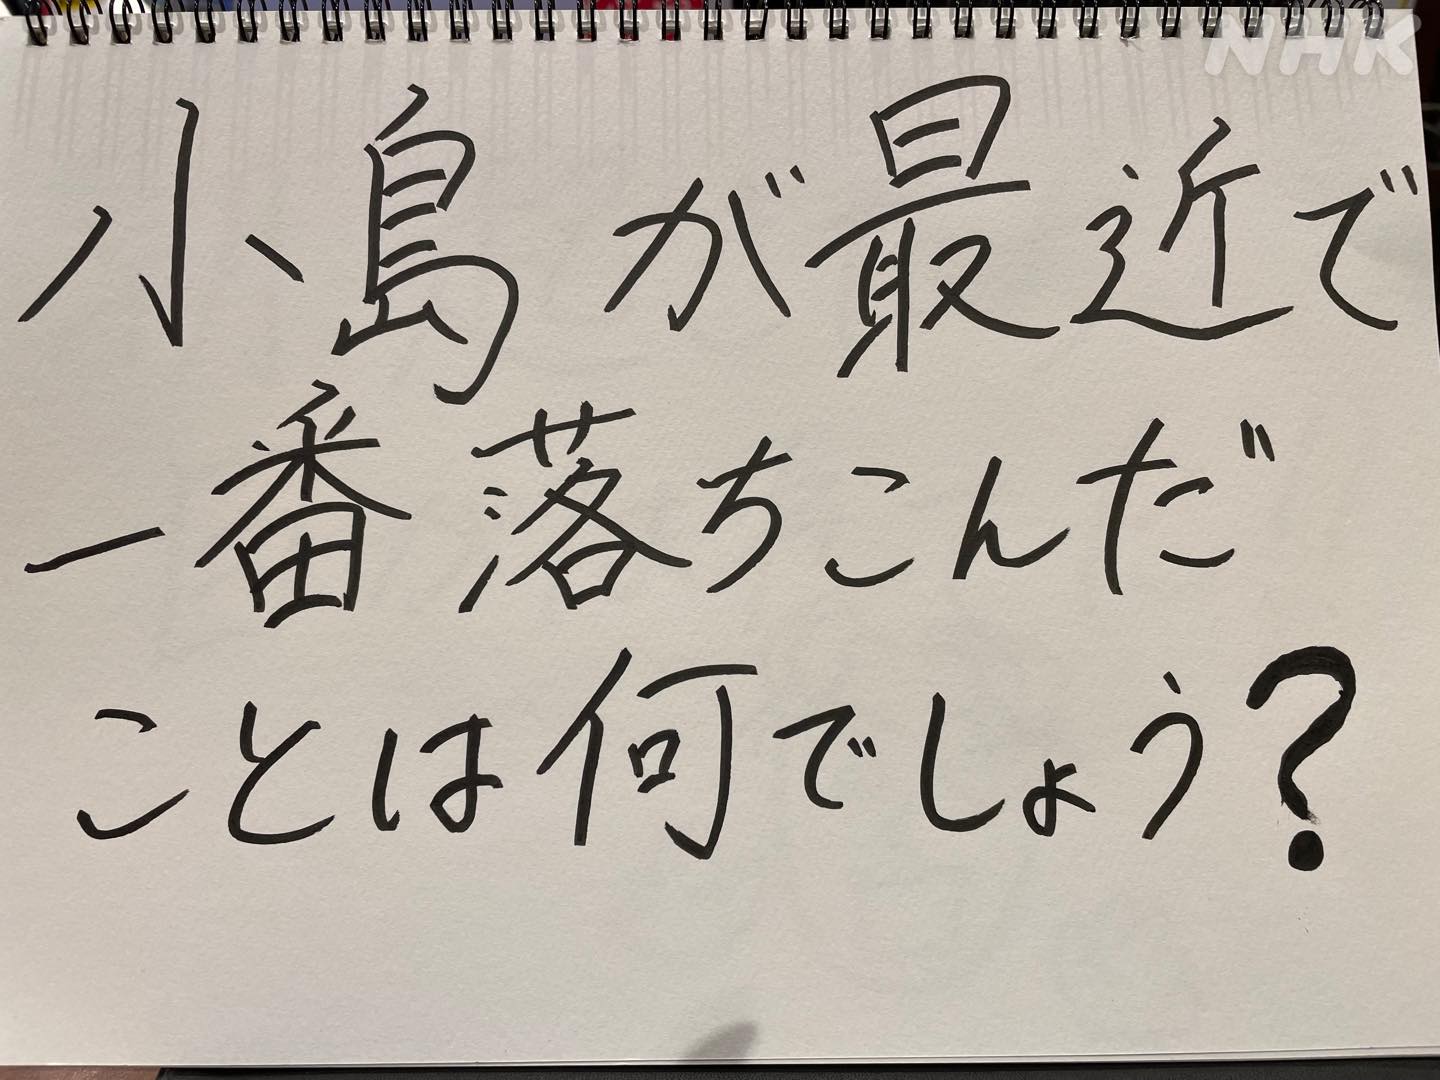 NHK
小島が最近で
一番落ちこんだ
ことは何でしょう?